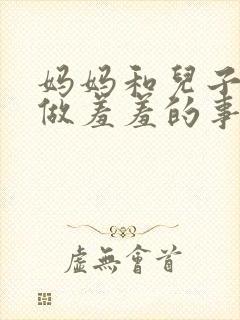 妈妈和兒子
做羞羞的事
虛無會首